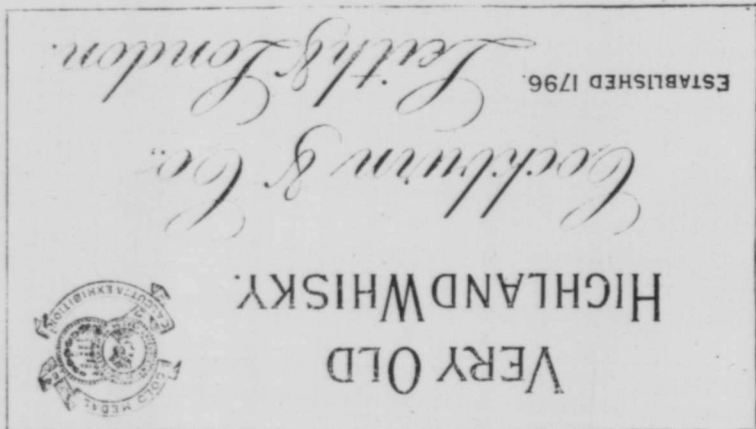 VERY OLD
HIGHLAND WHISKY.
GOLD MEDAL
CALCUTTA EXHIBITION
Cockburn & Co.,
Leith & London.
ESTABLISHED 1796.